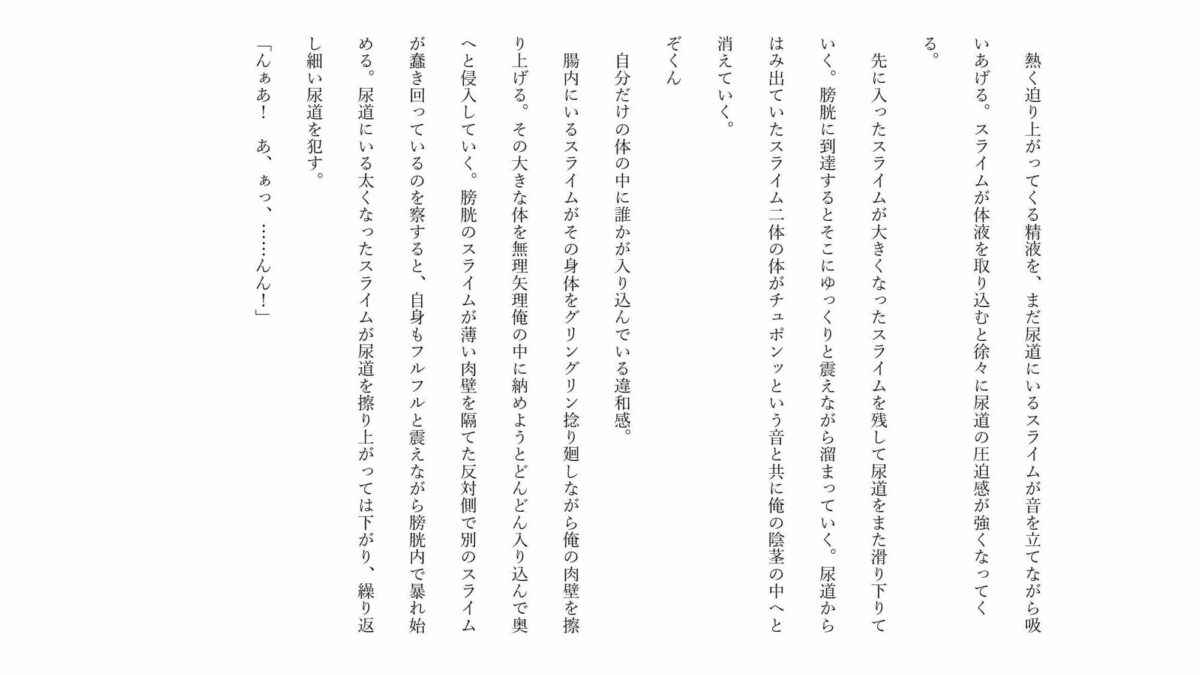 熱く迫り上がってくる精液を、まだ尿道にいるスライムが音を立てながら吸
いあげる。スライムが体液を取り込むと徐々に尿道の圧迫感が強くなってく
る。
　先に入ったスライムが大きくなったスライムを残して尿道をまた滑り下りて
いく。膀胱に到達するとそこにゆっくりと震えながら溜まっていく。尿道から
はみ出ていたスライム二体の体がチュポンッという音と共に俺の陰茎の中へと
消えていく。
ぞくん
　自分だけの体の中に誰かが入り込んでいる違和感。
　腸内にいるスライムがその身体をグリングリン捻り廻しながら俺の肉壁を擦
り上げる。その大きな体を無理矢理俺の中に納めようとどんどん入り込んで奥
へと侵入していく。膀胱のスライムが薄い肉壁を隔てた反対側で別のスライム
が蠢き回っているのを察すると、自身もフルフルと震えながら膀胱内で暴れ始
める。尿道にいる太くなったスライムが尿道を擦り上がっては下がり、繰り返
し細い尿道を犯す。
「んぁあ！　あ、ぁっ、……んん！」